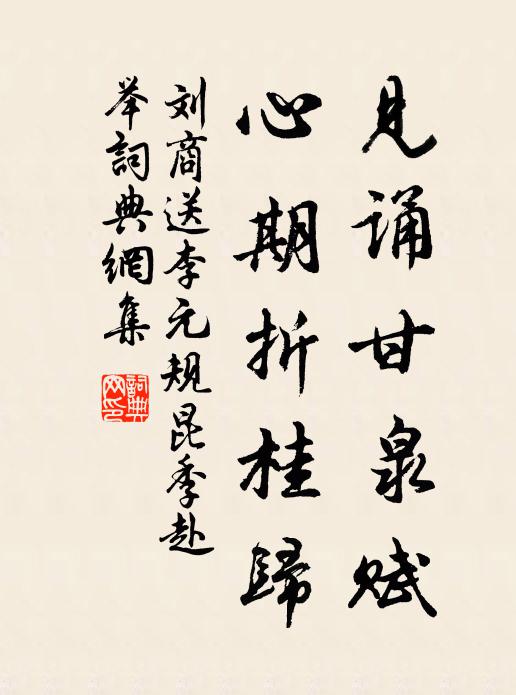 见诵甘泉赋
心期折桂歸
刘商送李元规昆季赴
举詞典網集
詞典
网印